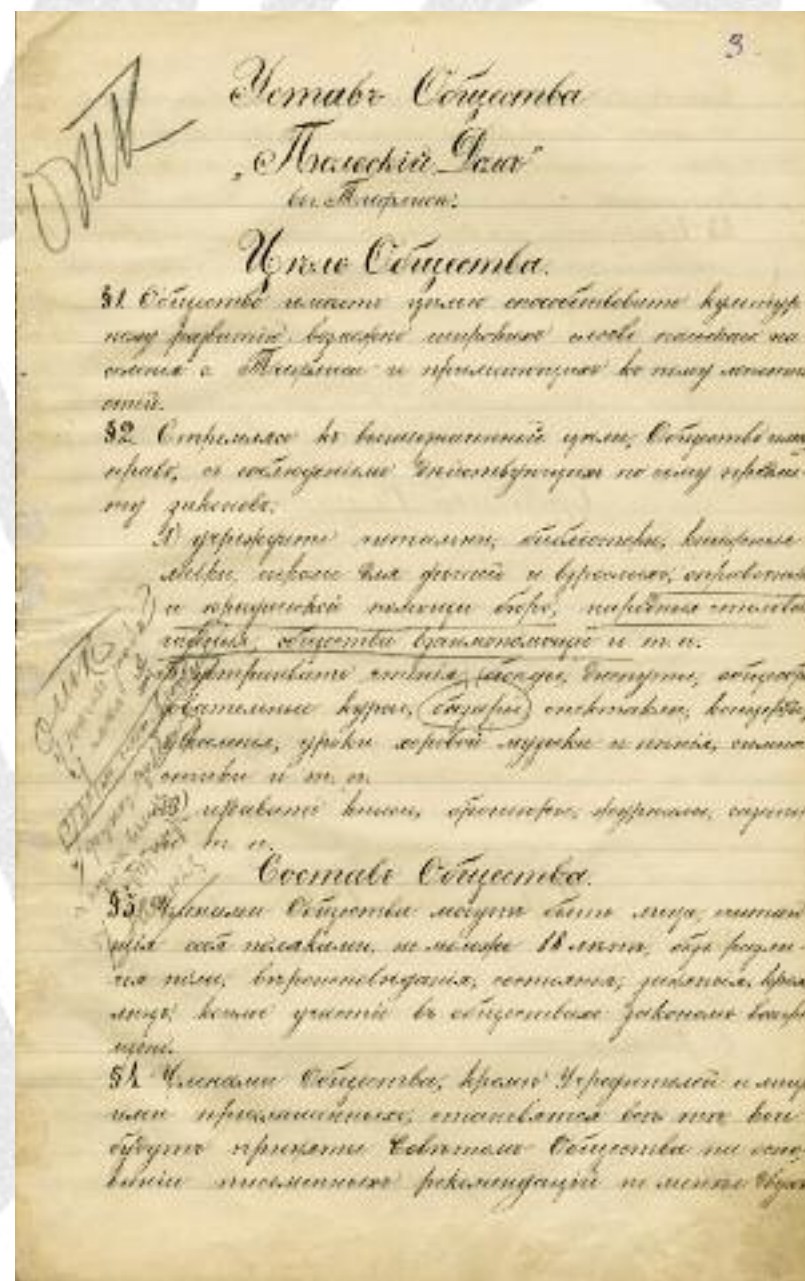 3
Уставъ Общества
„Польскій Домъ"
въ Тифлисѣ.
Цѣль Общества.
§1. Общество имѣетъ цѣлью способствовать культур
ному развитію возможно широкихъ слоевъ на
селенія г. Тифлиса и прилегающихъ къ нему мѣстно
стей.
§2. Стремясь къ вышеуказанной цѣли, Общество имѣ
право, съ соблюденіемъ дѣйствующихъ по сему предме
ту законовъ:
1) учреждать читальни, библіотеки, книжные
для дѣтей и взрослыхъ, справочныя
и юридической помощи бюро, народныя столовыя
общества взаимопомощи и т. п.
устраивать чтенія, бесѣды, диспуты, общеобр
зовательные курсы, базары, спектакли, концерты,
гулянья, уроки хоровой музыки и пѣнія, гимна
стики и т. п.
3) издавать книги, брошюры, журналы, газеты
и т. п.
Составъ Общества.
§3. Членами Общества могутъ быть лица, считаю
щія себя поляками, не моложе 18 лѣтъ, безъ разли
чія пола, вѣроисповѣданія, состоянія, занятія, кромѣ
лицъ, коимъ участіе въ обществахъ закономъ воспре
щено.
§4. Членами Общества, кромѣ Учредителей и лицъ
ими приглашенныхъ, становятся всѣ тѣ кои
будутъ приняты Совѣтомъ Общества на осно
ваніи письменныхъ рекомендацій не менѣе двухъ